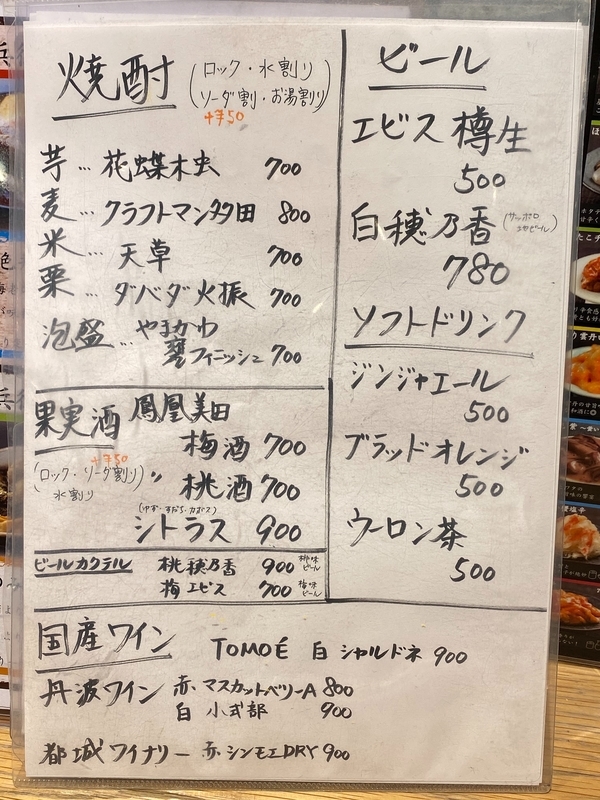 焼酎
(ロック・水割り
ソーダ割・お湯割り)
+¥50
芋…花蝶木虫 700
麦…クラフトマン多田 800
米…天草 700
栗…ダバダ火振 700
泡盛…やまかわ
甕フィニッシュ 700
果実酒 鳳凰美田
梅酒 700
+¥50
(ロック・ソーダ割り)
水割り
〃 桃酒 700
(ゆず・すだち・カボス)
シトラス 900
ビールカクテル 桃穂乃香 900 桃味ビール
梅エビス 700 梅味ビール
ビール
エビス樽生
500
白穂乃香 (サッポロ
地ビール)
780
ソフトドリンク
ジンジャエール
500
ブラッドオレンジ
500
ウーロン茶
500
国産ワイン TOMOÉ 白 シャルドネ 900
丹波ワイン 赤 マスカットベリーA 800
白 小式部 900
都城ワイナリー 赤 シンモエDRY 900